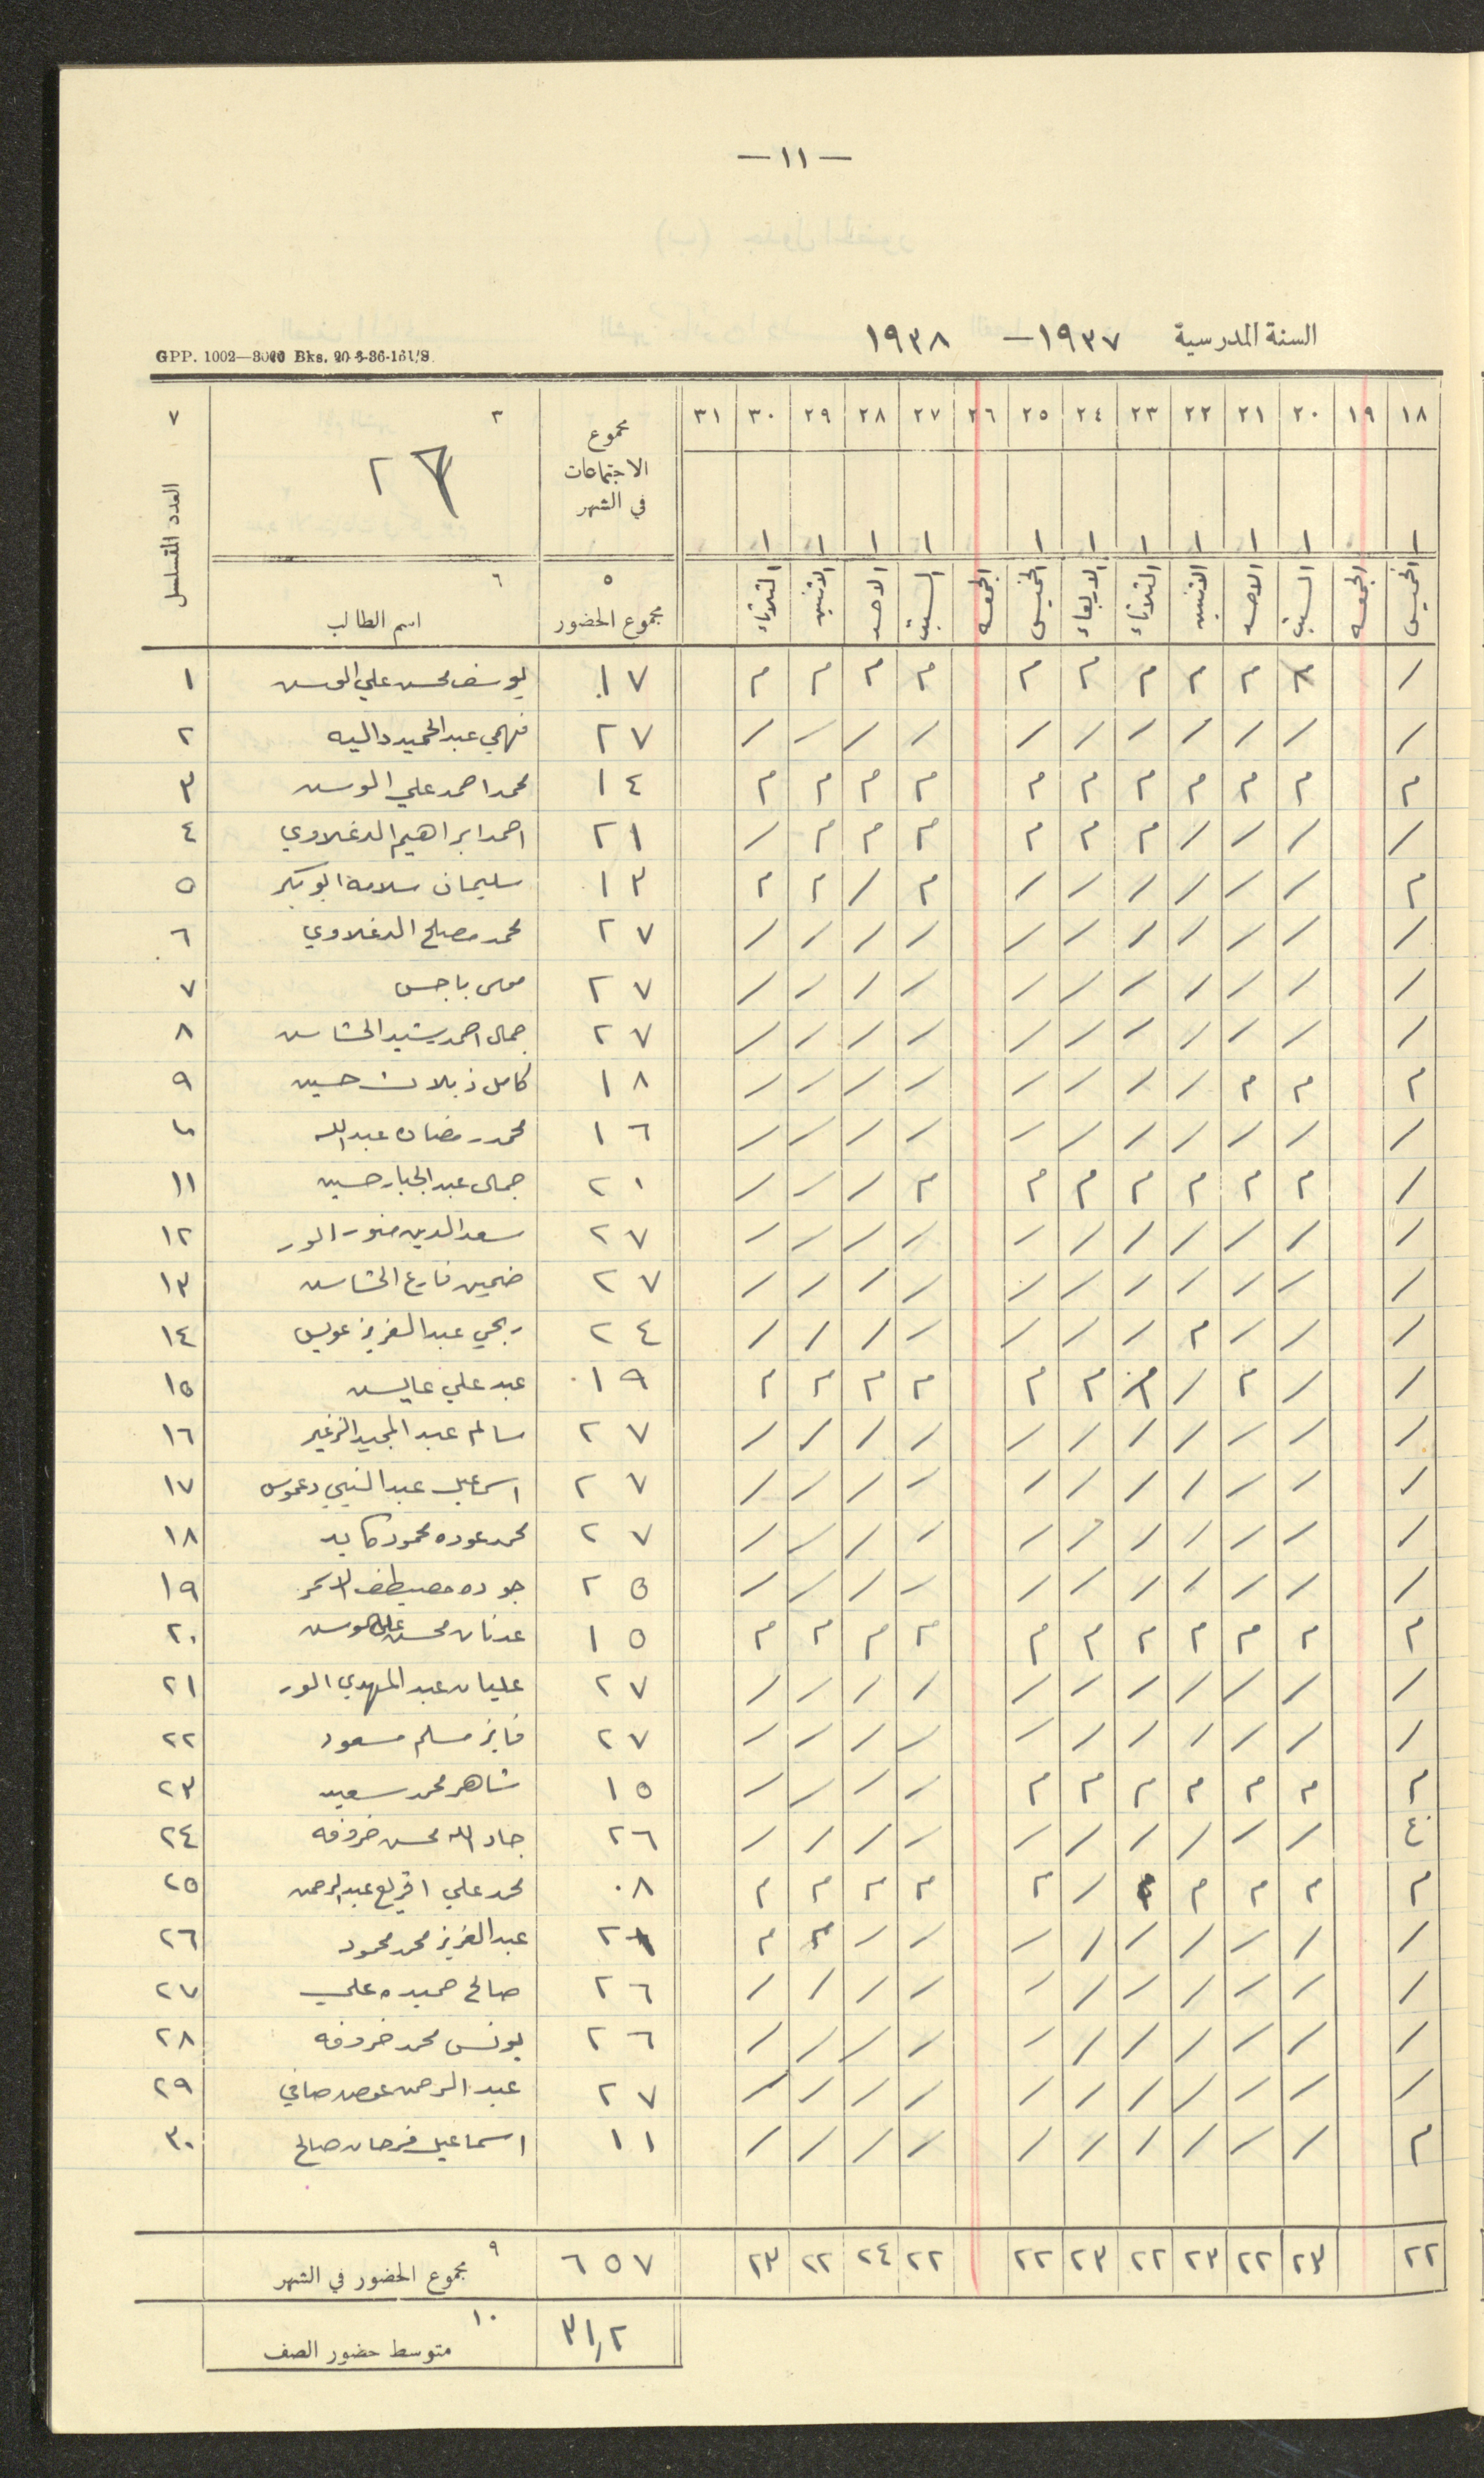 — ١١ —
السنة المدرسية ١٩٣٧ — ١٩٣٨
GPP. 1002—3000 Bks. 20-8-36-161/S.
١٨ ١٩ ٢٠ ٢١ ٢٢ ٢٣ ٢٤ ٢٥ ٢٦ ٢٧ ٢٨ ٢٩ ٣٠ ٣١ مجموع الاجتماعات في الشهر ٣ ٧
١ ١ ١ ١ ١ ١ ١ ١ ١ ١ ١ العدد المتسلسل
الخميس الجمعه السبت الاحد الاثنين الثلاثاء الاربعاء الخميس الجمعه السبت الاحد الاثنين الثلاثاء ٥ مجموع الحضور ٦ اسم الطالب
/ م م م م م م م م م م ١٧ يوسف محسن علي ١
/ / / / / / / / / / / ٢٧ فهمي عبد الحميد داليه ٢
م م م م م م م م م م م ١٤ محمد احمد علي ٣
/ / / / م م م م م م / ٢١ احمد ابراهيم الدغلاوي ٤
م / / / / / / م / م م ١٣ سليمان سلامة ابو بكر ٥
/ / / / / / / / / / / ٢٧ محمد مصلح الدغلاوي ٦
/ / / / / / / / / / / ٢٧ موسى باجس ٧
/ / / / / / / / / / / ٢٧ جمال احمد رشيد ٨
م م م / / / / / / / / ١٨ كامل حسين ٩
/ / / / / / / / / / / ١٦ محمد رمضان عبدالله ١٠
/ م م م م م م م / / / ٢٠ جمال عبد الجبار حسين ١١
/ / / / / / / / / / / ٢٧ سعد الدين ١٢
/ / / / / / / / / / / ٢٧ ضمين فارع ١٣
/ / / م / / / / / / / ٢٤ ربحي عبد العزيز عويس ١٤
/ / م / م م م م م م م ١٩ عبد علي عايس ١٥
/ / / / / / / / / / / ٢٧ سالم عبد المجيد الزغير ١٦
/ / / / / / / / / / / ٢٧ اسماعيل عبد النبي دعموس ١٧
/ / / / / / / / / / / ٢٧ محمد عوده محمود كايد ١٨
/ / / / / / / / / / / ٢٥ جوده مصطفى ١٩
م م م م م م م م م م م ١٥ عدنان محسن علي ٢٠
/ / / / / / / / / / / ٢٧ عليان عبد المهدي الور ٢١
/ / / / / / / / / / / ٢٧ فايز مسلم مسعود ٢٢
م م م م م م م / / / / ١٥ شاهر محمد سعيد ٢٣
غ / / / / / / / / / / ٢٦ جاد الله محسن خروفه ٢٤
م م م م / م م م م م ٠٨ محمد علي عبد الرحمن ٢٥
/ / / / / / / / / م م عبد العزيز محمد محمود ٢٦
/ / / / / / / / / / / ٢٦ صالح حميده علي ٢٧
/ / / / / / / / / / / ٢٦ يونس محمد خروفه ٢٨
/ / / / / / / / / / / ٢٧ عبد الرحمن عوض صافي ٢٩
م / / / / / / / / / / ١١ اسماعيل فرحان صالح ٣٠
٢٢ ٢٣ ٢٢ ٢٣ ٢٢ ٢٣ ٢٢ ٢٢ ٢٤ ٢٢ ٢٣ ٦٥٧ ٩ مجموع الحضور في الشهر
٣١,٢ ١٠ متوسط حضور الصف